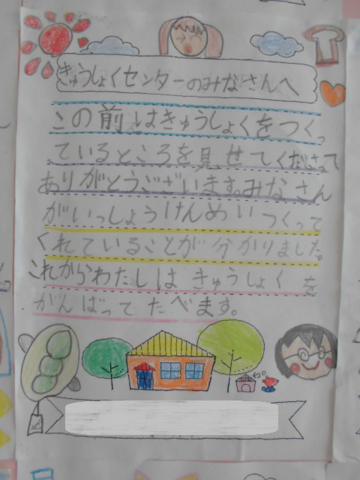 きゅうしょくセンターのみなさんへ
この前はきゅうしょくをつくっ
ているところを見せてくださって
ありがとうございます。みなさん
がいっしょうけんめいつくって
くれていることが分かりました。
これからわたしはきゅうしょくを
がんばってたべます。